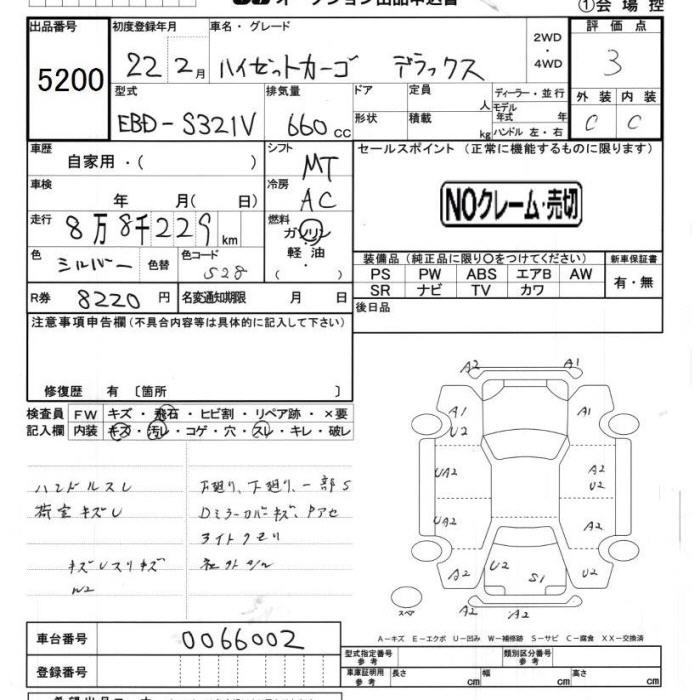 ①会場控
出品番号 初度登録年月 車名・グレード 2WD ・ 4WD 評価点
5200 22 2月 ハイゼットカーゴ デラックス 3
型式 排気量 ドア 定員 人 ディーラー・並行 外装 内装
EBD-S321V 660cc 形状 積載 kg モデル年式 年 ハンドル 左・右 C C
車歴 自家用・( ) シフト MT セールスポイント (正常に機能するものに限ります)
車検 年 月( 日) 冷房 AC
NOクレーム・売切
走行 8万8千229km 燃料 ガソリン 軽油 ( )
色 シルバー 色替 色コード S28
装備品 (純正品に限り○をつけてください) 新車保証書
PS PW ABS エアB AW 有・無
SR ナビ TV カワ
R券 8220円 名変通知期限 月 日 後日品
注意事項申告欄(不具合内容等は具体的に記入して下さい)
修復歴 有 〔箇所 〕
検査員 FW キズ・飛石・ヒビ割・リペア跡・×要
記入欄 内装 キズ・汚レ・コゲ・穴・スレ・キレ・破レ
ハンドルスレ
荷室キズU
下廻り、一部S
Dミラーカバーキズ
ライトクモリ
A2 A1
A1 A1
U2
UA2 A2
U2
UA2 A2
A2 U2 S1 A2
A2 A2
スペア
A-キズ E-エクボ U-凹み W-補修跡 S-サビ C-腐食 XX-交換済
車台番号 0066002
型式指定番号 参考 類別区分番号 参考
登録番号
車庫証明用 参考 長さ cm 幅 cm 高さ cm